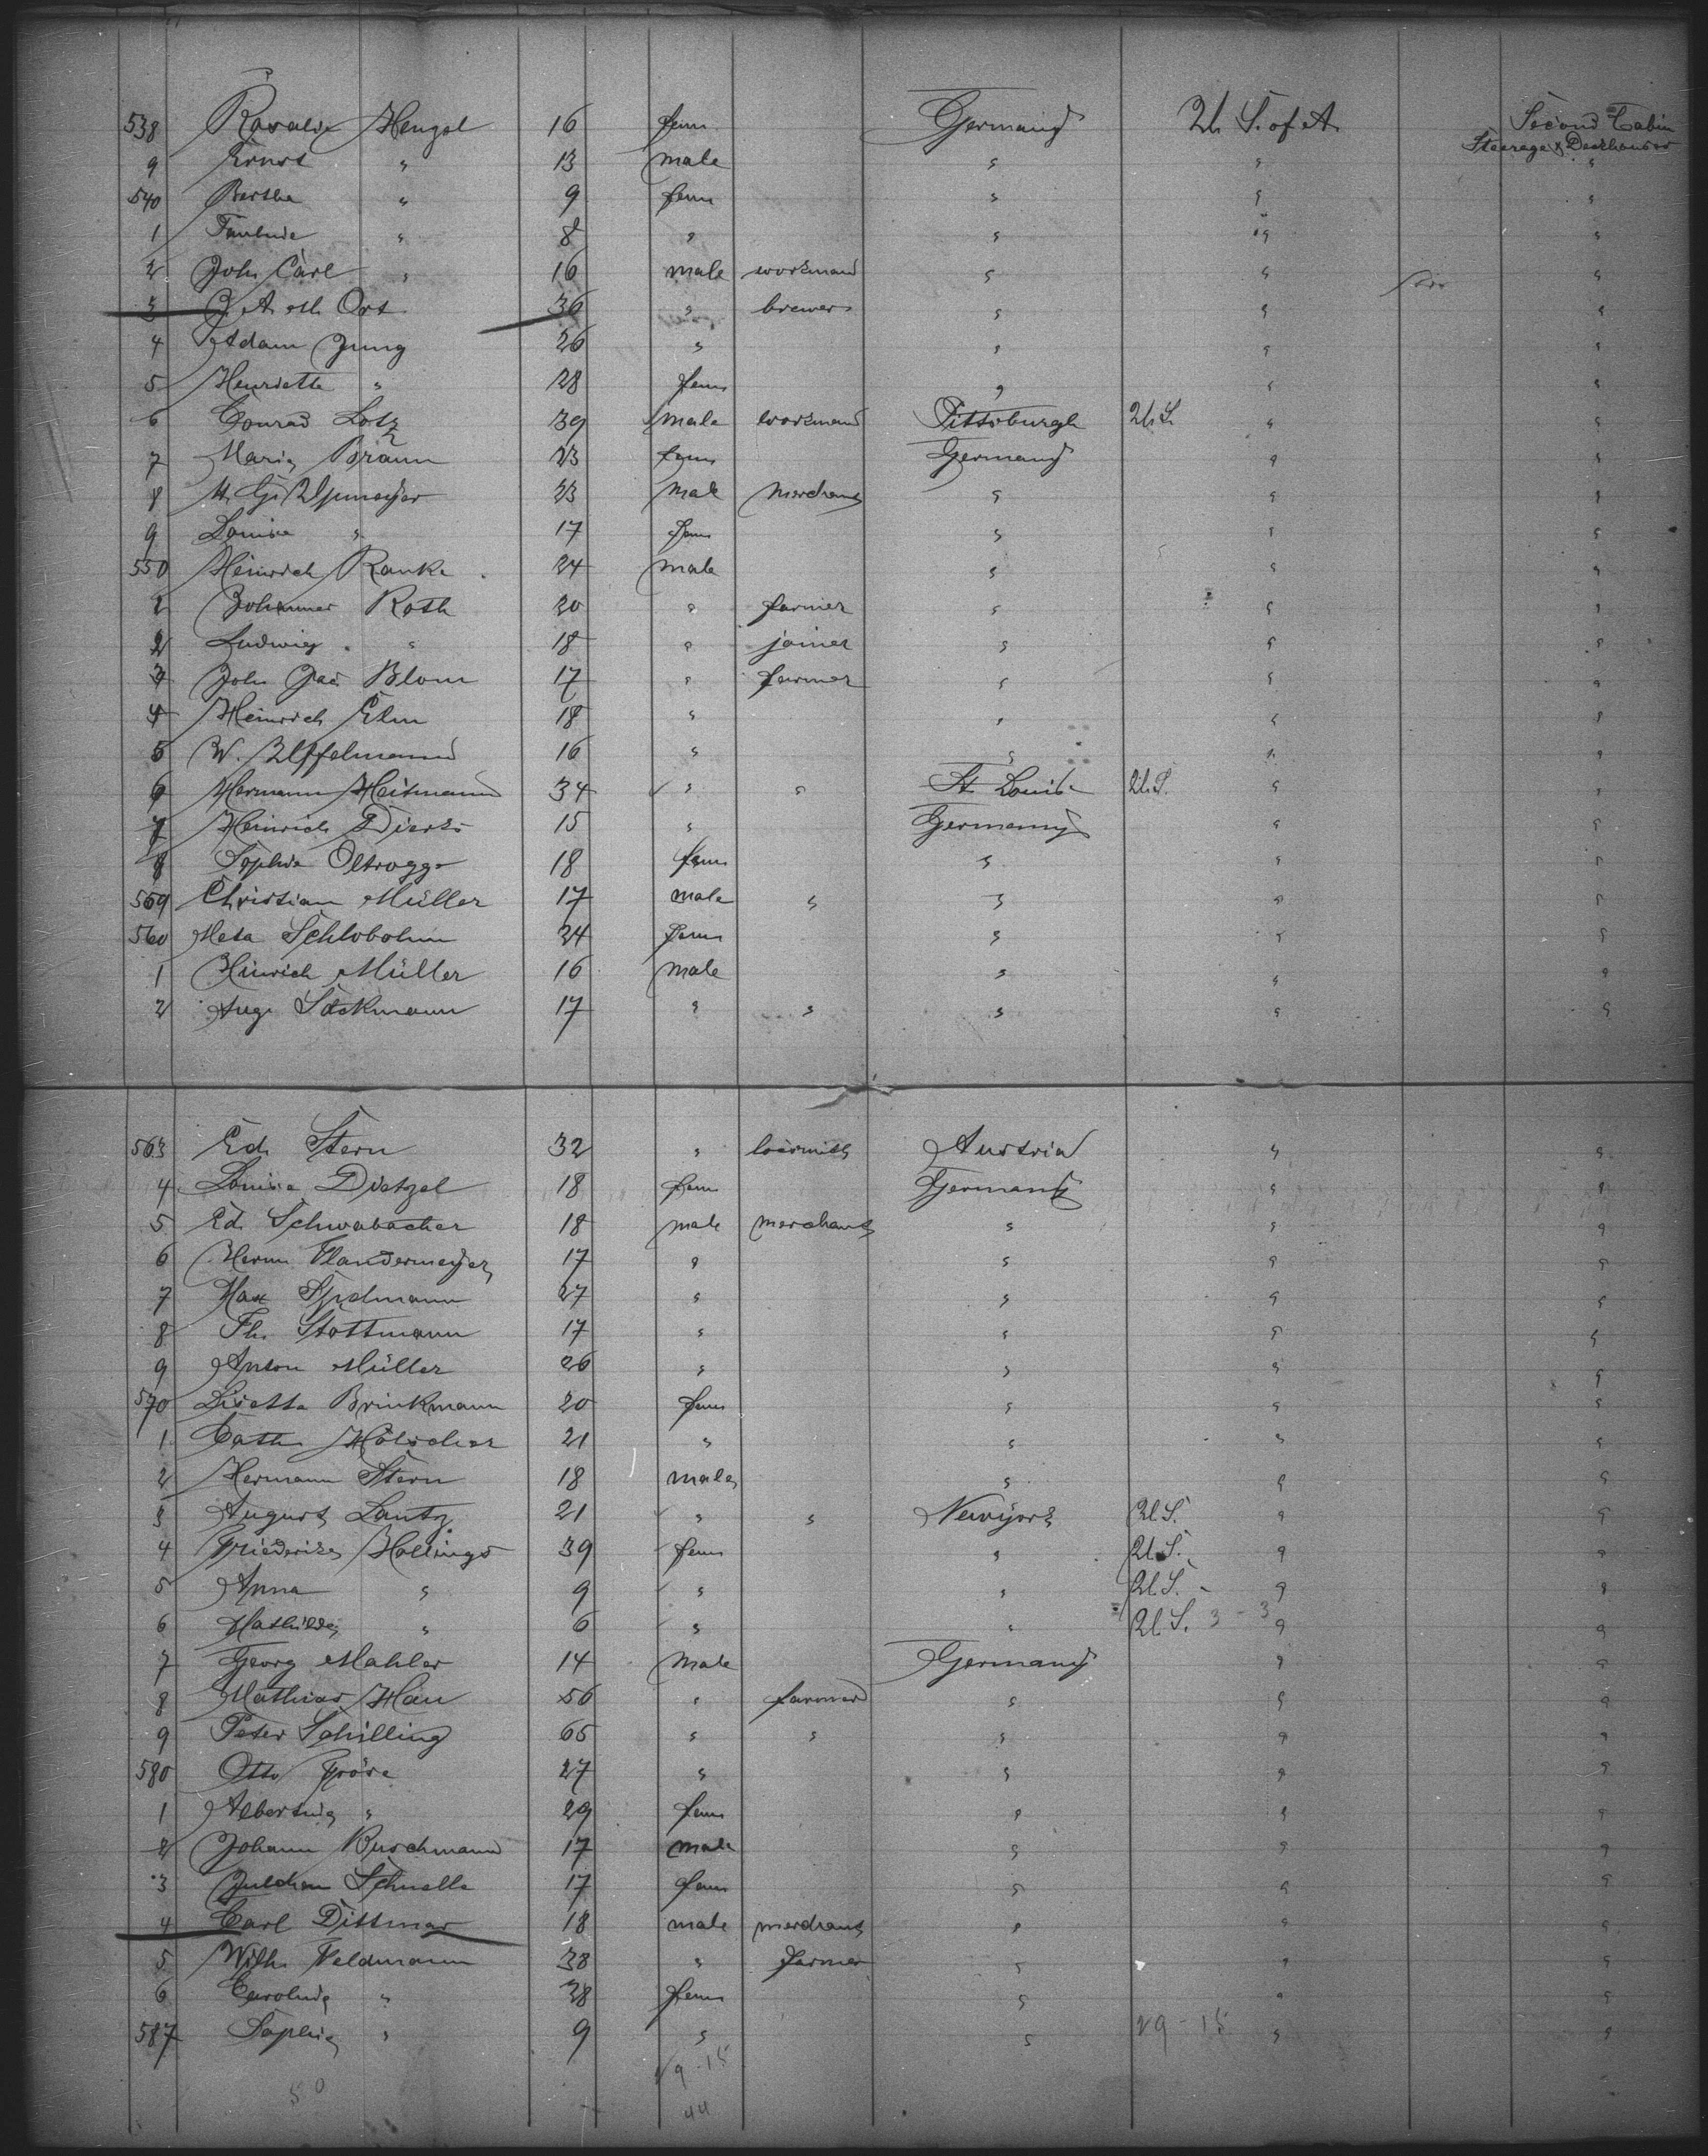 Second Cabin
538 Rosalie Hengel 16 fem Germany U. S. of A. Steerage & Deckhouses
9 Ernst " 13 male " " "
540 Bertha " 9 fem " " "
1 " 8 " " " "
2 Joh. Carl " 16 male workman " " "
3 Ort 36 " brewer " " "
4 Adam Jung 26 " " " "
5 Henriette " 28 fem " " "
6 Conrad Lotz 39 male workman Pittsburgh U. S. " "
7 Maria Braun 23 fem Germany " "
8 23 male merchant " " "
9 Louise " 17 fem " " "
550 Heinrich Ranke 24 male " " "
1 Johannes Roth 20 " farmer " " "
2 Ludwig " 18 " joiner " " "
3 Joh. Jac. Blom 17 " farmer " " "
4 Heinrich Elm 18 " " " "
5 W. Uffelmann 16 " " " "
6 Hermann Heitmann 34 " " St. Louis U. S. " "
7 Heinrich Dierks 15 " Germany " "
8 Sophie Oltrogge 18 fem " " "
559 Christian Müller 17 male " " " "
560 Meta Schlobohm 24 fem " " "
1 Hinrich Müller 16 male " " "
2 Aug. 17 " " " " "
563 Ed. Stern 32 " Austria " "
4 Louise Dietzel 18 fem Germany " "
5 Ed. Schwabacher 18 male merchant " " "
6 Herm. Flandermeyer 17 " " " "
7 Max 27 " " " "
8 Th. Stottmann 17 " " " "
9 Anton Müller 26 " " " "
570 Lisette Brinkmann 20 fem " " "
1 Cath. Hölscher 21 " " " "
2 Hermann Stern 18 male " " "
3 August Lantz 21 " " Newyork U. S. " "
4 Friederike Hollings 39 fem " U. S. " "
5 Anna " 9 " " U. S. " "
6 Mathilde " 6 " " U. S. 3 - 3 " "
7 Georg Mahler 14 male Germany " "
8 Mathias Hau 56 " farmer " " "
9 Peter Schilling 65 " " " " "
580 Otto 27 " " " "
1 Albertine " 29 fem " " "
2 Johann Buschmann 17 male " " "
3 Julchen Schnelle 17 fem " " "
4 Carl Dittmar 18 male merchant " " "
5 Wilh. Feldmann 38 " farmer " " "
6 Caroline " 38 fem " " "
587 Sophie " 9 " " 29 - 15 " "
29 - 15
50
44